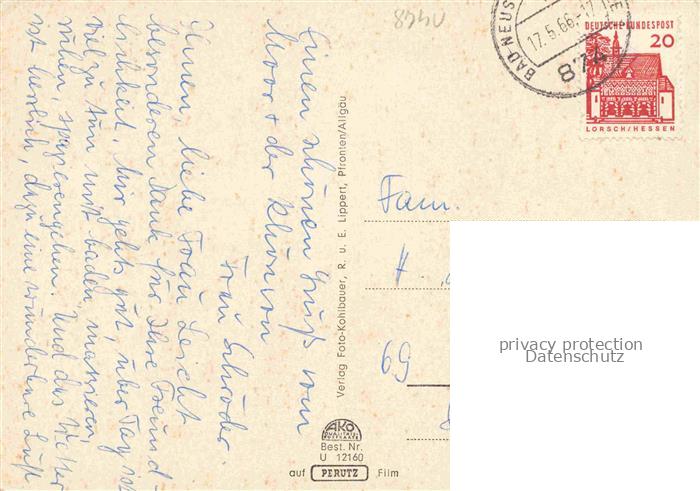 Einen schönen Gruß vom
Moor + der Rhön von
Frau Schröder.
Ihnen, liebe Frau Leicht
besonderen Dank für Ihre Freund
lichkeit. Mir gehts gut über Tag ist
viel zu tun mit baden, massieren,
ruhen, spazierengehen. Und das Wetter
ist herrlich, dazu eine wunderbare Luft
Verlag Foto-Kohlbauer, R. u. E. Lippert, Pfronten/Allgäu
8740
BAD NEUS
17.5.66-17
874
DEUTSCHE BUNDESPOST
20
LORSCH/HESSEN
Fam.
H.
69
privacy protection
Datenschutz
AKO
QUALITÄTS
POSTKARTE
Best. Nr.
U 12160
auf PERUTZ Film